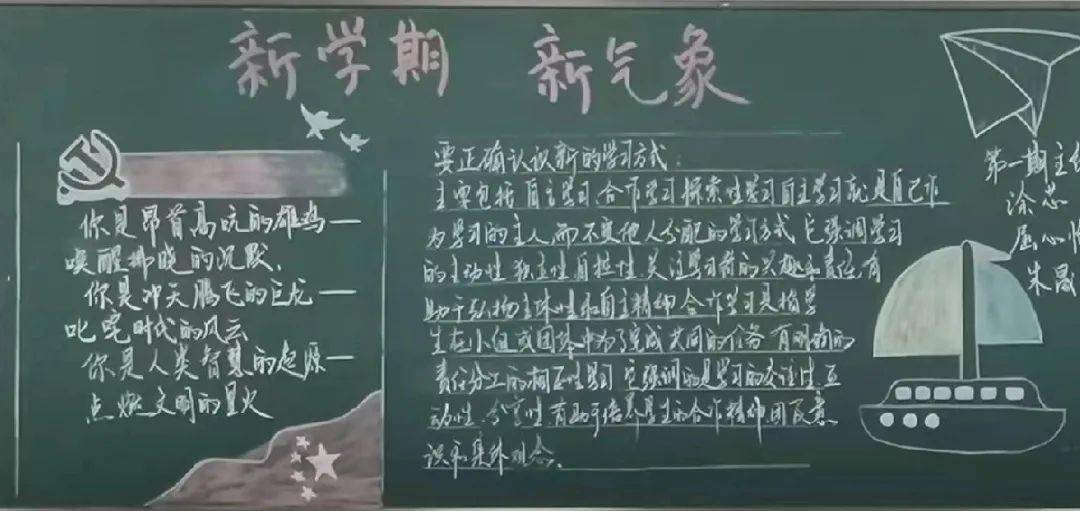 新学期 新气象
你是昂首高吭的雄鸡一
唤醒拂晓的沉默、
你是冲天腾飞的巨龙一
叱咤时代的风云
你是人类智慧的起源一
点燃文明的星火
要正确认识新的学习方式:
主要包括自主学习合作学习探索性学习自主学习就是自己作
为学习的主人而不受他人分配的学习方式 它强调学习
的主动性 独立性 自控性 关注学习者的兴趣和责任,有
助于弘扬主体性和自主精神 合作学习是指学
生在小组或团队中为了完成共同的任务 有明确的
责任分工的相互性学习 它强调的是学习的交往性 互
动性、分享性 有助于培养学生的合作精神 团队意
识和集体观念、
第一期主
涂芯
屈心
朱晟